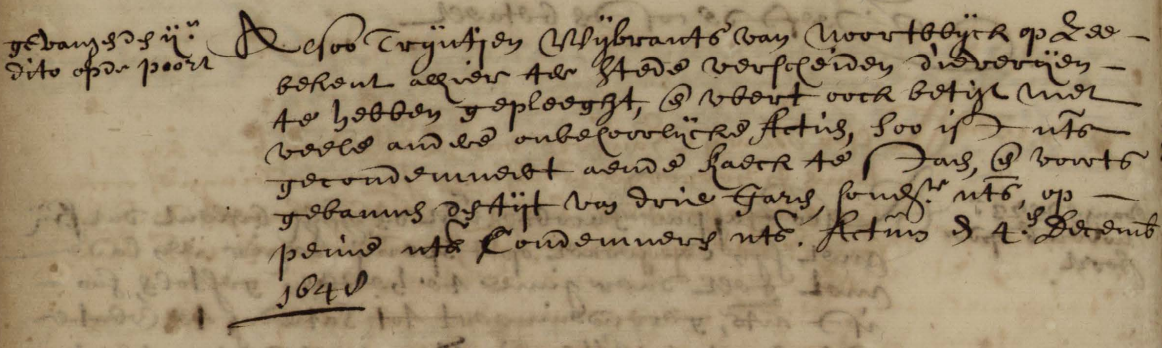 gevangen den ij.en
dito op de poort
Alsoo Trijntjen Wijbrants van Noortwijck op Zee
bekent alhier ter stede verscheiden dieverijen
te hebben gepleeght, en wert oock betijt met
veele andere onbehoorlijcke Actien, Soo ist uts
gecondemneert aende kaeck te staen, en voorts
gebannen den tijt van drie Jaren, sonder uts, op
peine uts Condemneren uts. Actum den 4.en Decemb
1648